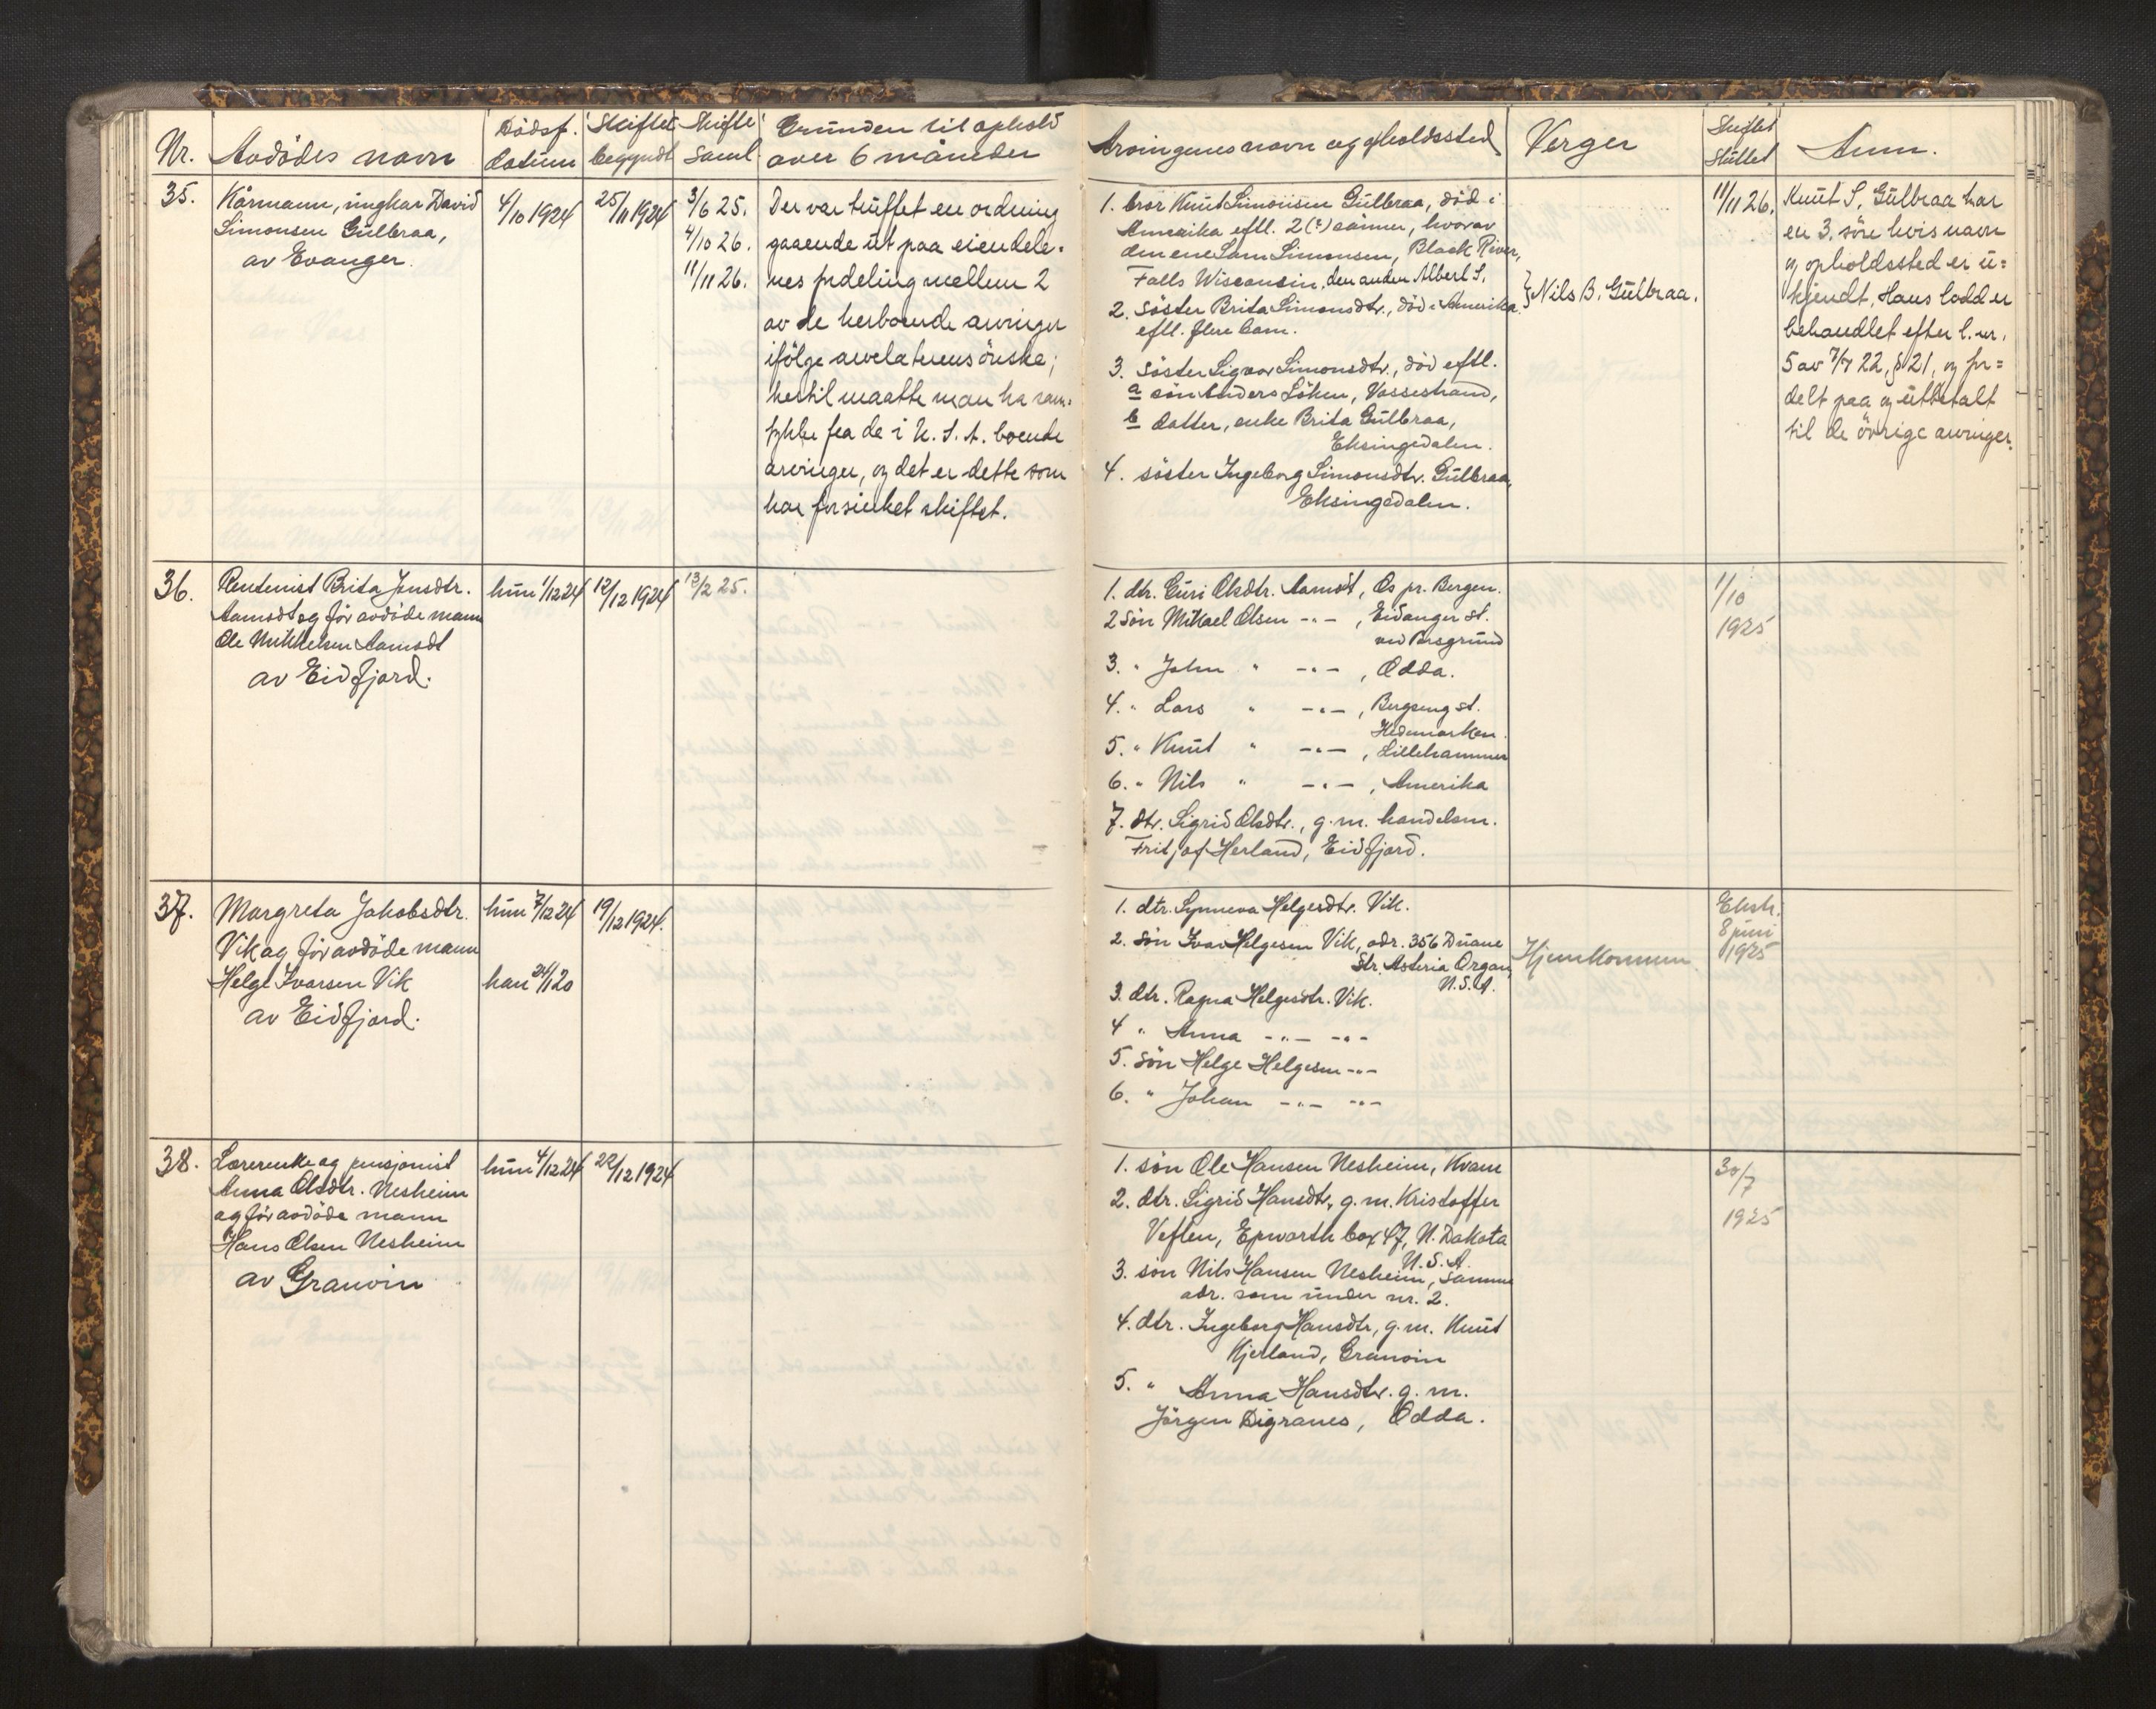 Nr.
Avdödes navn
Dödsf.
datum
Skiftet
begyndt
Skifte
saml.
Grunden til ophold
over 6 måneder
Arvingenes navn og opholdssted
Verger
Skiftet
Sluttet
Anm.
35.
Kårmann, ungkar David
Simonsen Gülbraa,
av Evanger.
4/10 1924
25/11 1924
3/6 25.
4/10 26.
11/11 26.
Der var truffet en ordning
gaaende ut paa eiendele-
nes fordeling mellem 2
av de herboende arvinger
ifölge arvelaterens önske;
hertil maatte man ha sam-
tykke fra de i U. S. A. boende
arvinger, og det er dette som
har forsinket skiftet.
1. bror Knut Simonsen Gülbraa, död i
Amerika eftl. 2(?) sönner, hvorav
den ene Sam Simonsen, Black River,
Falls Wisconsin, den anden Albert S.
2. Söster Brita Simonsdtr., död i Amerika
eftl. flere barn.
3. Söster Sigvor Simonsdtr., död eftl.
a sön Anders Löken, Vossestrand,
b datter, enke Brita Gülbraa,
Eksingedalen.
4. söster Ingeborg Simonsdtr. Gülbraa,
Eksingedalen.
} Nils B. Gülbraa.
11/11 26.
Knut S. Gülbraa har
en 3. sön hvis navn
og opholdssted er u=
kjendt, Hans lodd er
behandlet efter l. nr.
5 av 7/7 22, § 21, og for=
delt paa og utbetalt
til de övrige arvinger.
36.
Rentenist Brita Jensdtr.
Aamodt og för avdöde mann
Ole Mikkelsen Aamodt
av Eidfjord.
hun 1/12 24
12/12 1924
13/2 25.
1. dtr. Guri Olsdtr. Aamodt, Os pr. Bergen.
2 Sön Mikael Olsen -"- , Eidanger st.
ved Porsgrund
3. " John " -"- , Odda.
4. " Lars " -"- , Bergseng st.
Hedemarken.
5. " Knut " -"- , Lillehammer
6. " Nils " -"- , Amerika
7. dtr. Sigrid Olsdtr., g. m. handelsm.
Fritjof Herland, Eidfjord.
1/10
1925
37.
Margreta Jakobsdtr.
Vik og för avdöde mann
Helge Ivarsen Vik
av Eidfjord.
hun 7/12 24
han 24/1 20
19/12 1924.
1. dtr. Synneva Helgesdtr. Vik.
2. Sön Ivar Helgesen Vik, adr. 356 Duane
Str. Asteria Organ,
U.S.A.
3. dtr. Ragna Helgesdtr. Vik.
4 " Anna -"- -"-
5. Sön Helge Helgesen -"-
6. " Johan -"- -"-
8 juni
1925
38.
Lærerenke og pensjonist
Anna Olsdtr. Nesheim
og för avdöde mann
Hans Olsen Nesheim
av Granvin
hun 4/12 24
22/12 1924
1. sön Ole Hansen Nesheim, Kvam
2. dtr. Sigrid Hansdtr., g. m. Kristoffer
Veflen, Epworth box 47, N. Dakota
U. S. A.
3. sön Nils Hansen Nesheim, samme
adr. som under nr. 2.
4. dtr. Ingeborg Hansdtr, g. m. Knut
Kjerland, Granvin
5. " Anna Hansdtr. g. m.
Jörgen Digranes, Odda.
30/7
1925